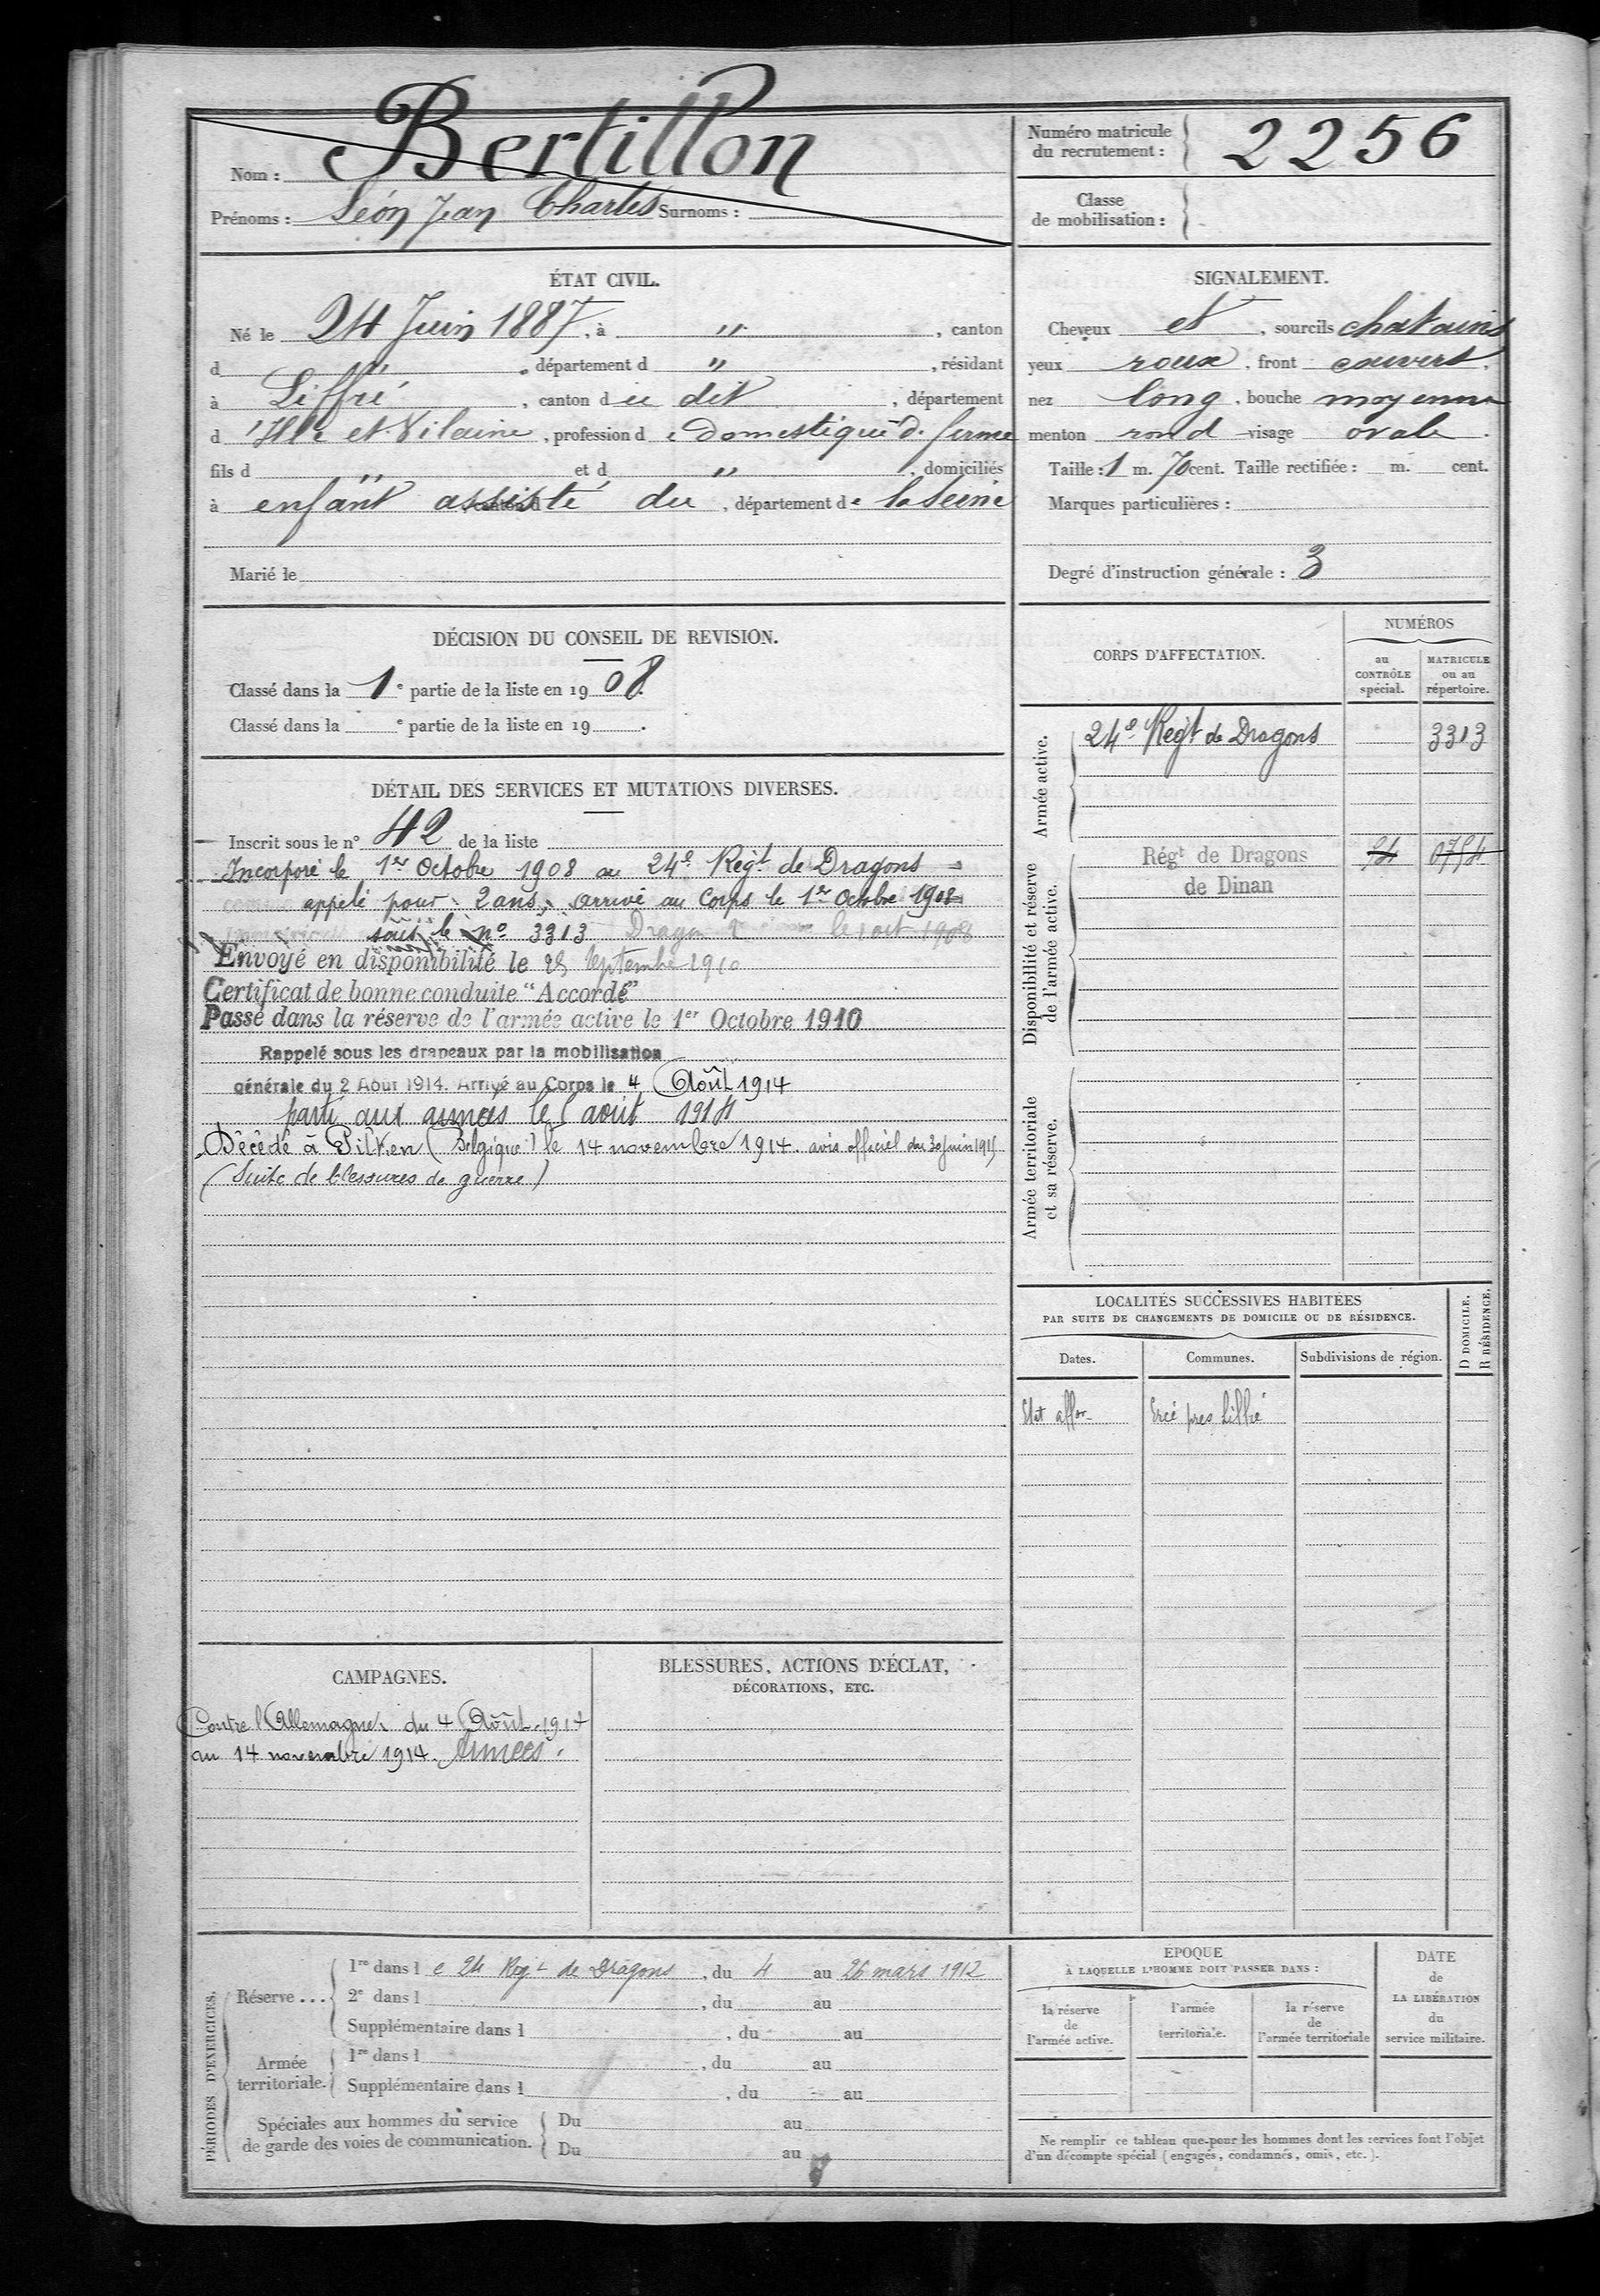 Nom : Bertillon
Prénoms : Léon Jean Charles Surnoms :
Numéro matricule du recrutement : 2256
Classe de mobilisation :
ÉTAT CIVIL.
Né le 24 Juin 1887, à " , canton
d " , département d " , résidant
à Liffré , canton d u dit , département
d 'Ille et Vilaine , profession d e domestique d. ferme
fils d " et d " , domiciliés
à enfant assisté du , département de la Seine
Marié le
SIGNALEMENT.
Cheveux et , sourcils chatains
yeux roux , front couvert,
nez long , bouche moyenne
menton rond visage ovale .
Taille : 1 m. 70 cent. Taille rectifiée : m. cent.
Marques particulières :
Degré d'instruction générale : 3
DÉCISION DU CONSEIL DE REVISION.
Classé dans la 1e partie de la liste en 1908.
Classé dans la e partie de la liste en 19 .
DÉTAIL DES SERVICES ET MUTATIONS DIVERSES.
Inscrit sous le n° 42 de la liste
Incorporé le 1er Octobre 1908 au 24e Régt de Dragons
appelé pour 2 ans, arrivé au Corps le 1er Octobre 1908
sous le no 3313 Dragon 1908
Envoyé en disponibilité le 25 Septembre 1910
Certificat de bonne conduite "Accordé"
Passé dans la réserve de l'armée active le 1er Octobre 1910
Rappelé sous les drapeaux par la mobilisation
générale du 2 Août 1914. Arrivé au Corps le 4 Août 1914
parti aux armées le août 1914
Décédé à Pilken (Belgique) le 14 novembre 1914. avis officiel du 30 juin 1915
(Suite de blessures de guerre)
CORPS D'AFFECTATION.
NUMÉROS
au CONTRÔLE spécial.
MATRICULE ou au répertoire.
Armée active.
24e Régt de Dragons 3313
Disponibilité et réserve de l'armée active.
Régt de Dragons
de Dinan
Armée territoriale et sa réserve.
LOCALITÉS SUCCESSIVES HABITÉES
PAR SUITE DE CHANGEMENTS DE DOMICILE OU DE RÉSIDENCE.
Dates.
Communes.
Subdivisions de région.
D DOMICILE.
R RÉSIDENCE.
Ercé pres Liffré
CAMPAGNES.
Contre l'Allemagne du 4 Août 1914
au 14 novembre 1914. Armées.
BLESSURES, ACTIONS D'ÉCLAT,
DÉCORATIONS, ETC.
PÉRIODES D'EXERCICES.
Réserve ...
1re dans l e 24 Regt de Dragons , du 4 au 26 mars 1912
2e dans l , du au
Supplémentaire dans l , du au
Armée territoriale.
1re dans l , du au
Supplémentaire dans l , du au
Spéciales aux hommes du service
de garde des voies de communication.
Du au
Du au
ÉPOQUE
À LAQUELLE L'HOMME DOIT PASSER DANS :
la réserve de l'armée active.
l'armée territoriale.
la réserve de l'armée territoriale
DATE de LA LIBÉRATION du service militaire.
Ne remplir ce tableau que pour les hommes dont les services font l'objet
d'un décompte spécial (engagés, condamnés, omis, etc.).